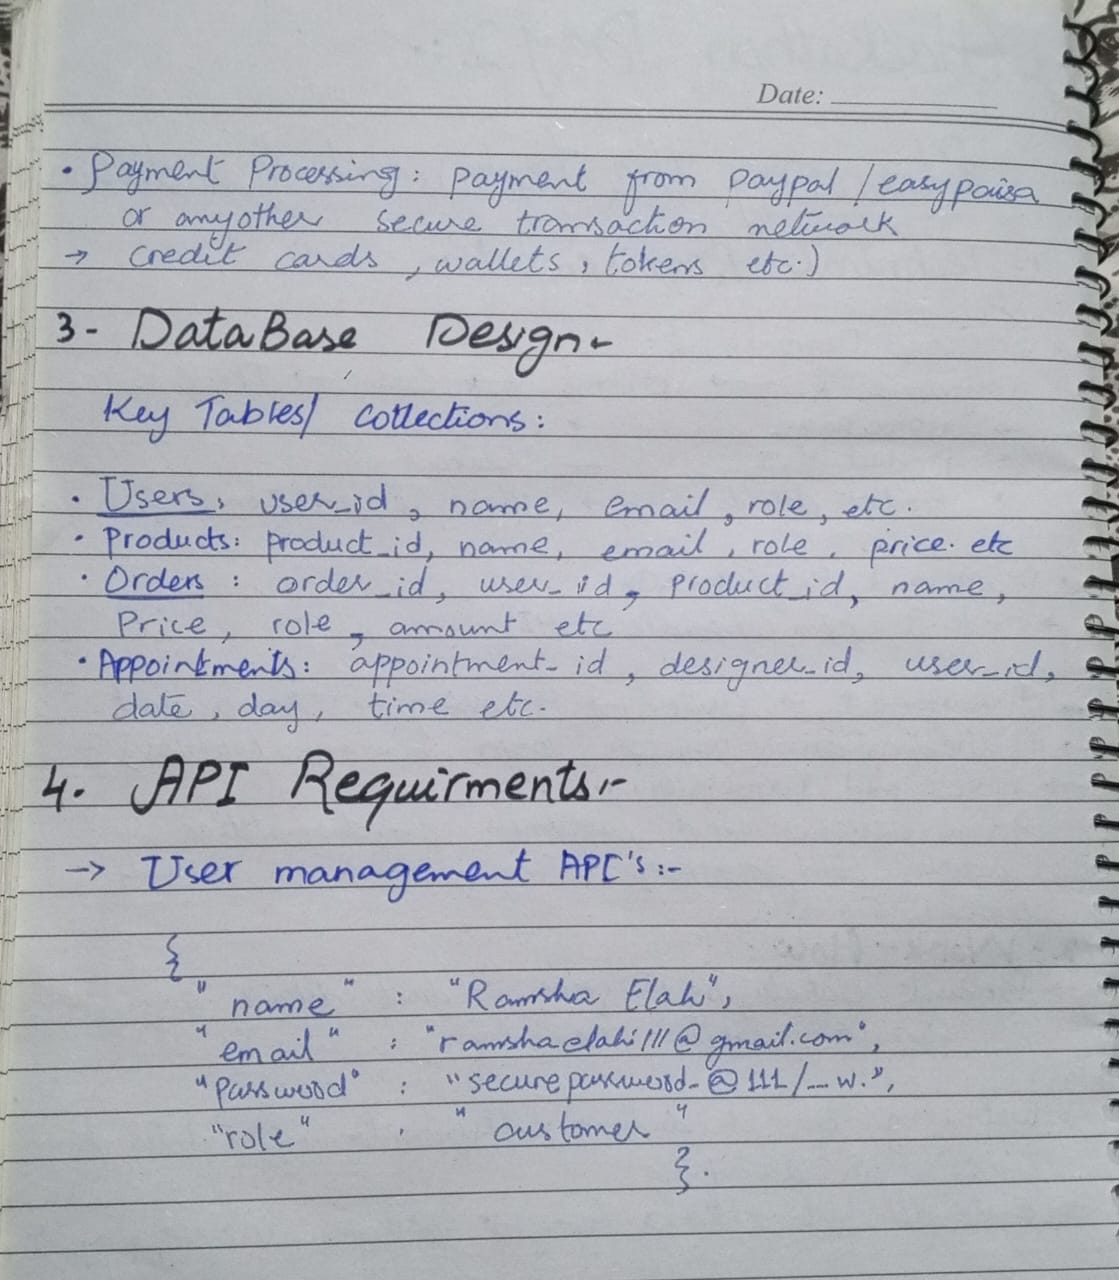 Date:
• Payment Processing: payment from paypal / easypaisa
or anyother secure transaction network
→ credit cards, wallets, tokens etc.)
3- DataBase Design:-
Key Tables/ collections:
• Users, user_id, name, email, role, etc.
• Products: product_id, name, email, role, price. etc
• Orders: order_id, user_id, product_id, name,
Price, role, amount etc
• Appointments: appointment_id, designer_id, user_id,
date, day, time etc.
4. API Requirments:-
→ User management API's:-
{
"name" : "Ramsha Elahi",
"email" : "ramshaelahi111@gmail.com",
"Password" : "securepassword-@111/__w.",
"role" : "customer"
}.